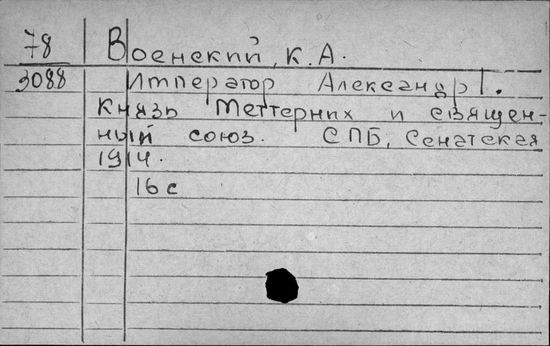 78 Военский, К.А.
3088 Император Александр I.
Князь Меттерних и священ-
ный союз. СПБ, Сенатская
1914.
16 с